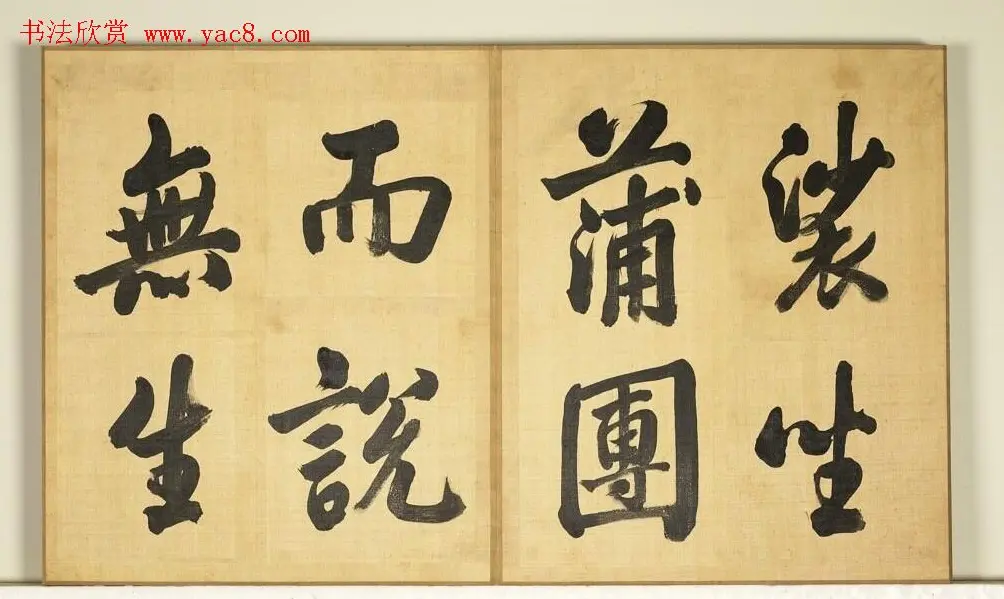 书法欣赏 www.yac8.com
裟坐
蒲團
而說
無生